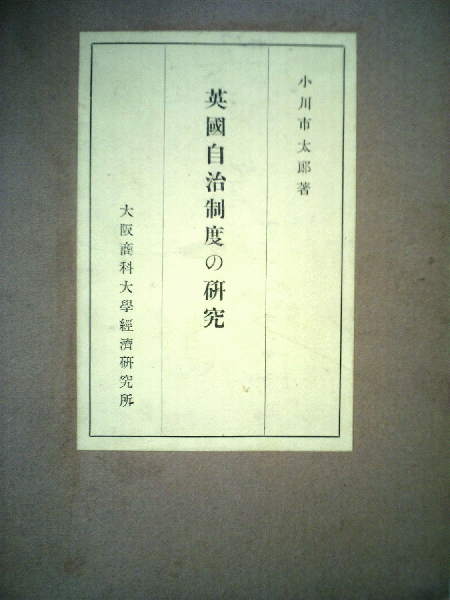 小川市太郎著
英國自治制度の研究
大阪商科大學經濟研究所